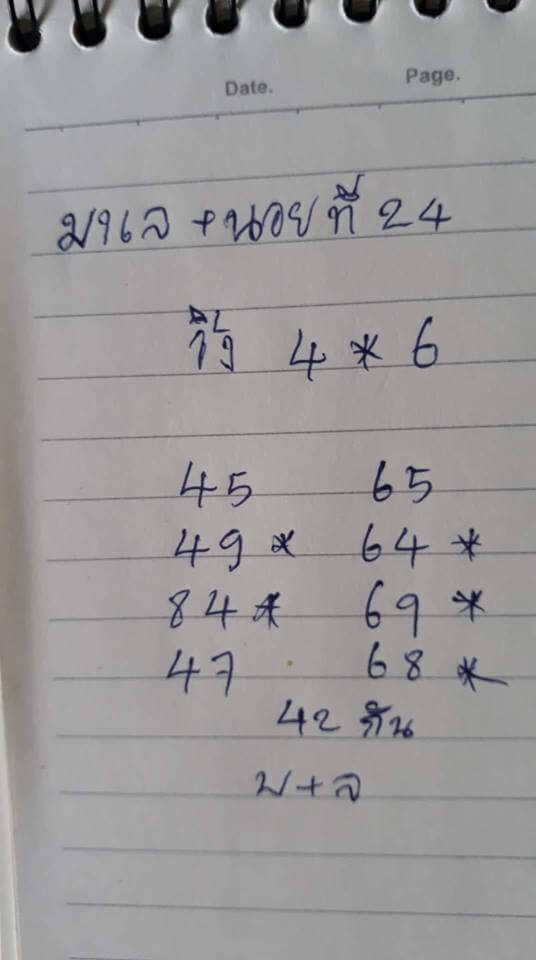 Date. Page.
มาเล +นอยที่ 24
วิ่ง 4 * 6
45 65
49 * 64 *
84 * 69 *
47 68 *
42 กัน
บ+ล